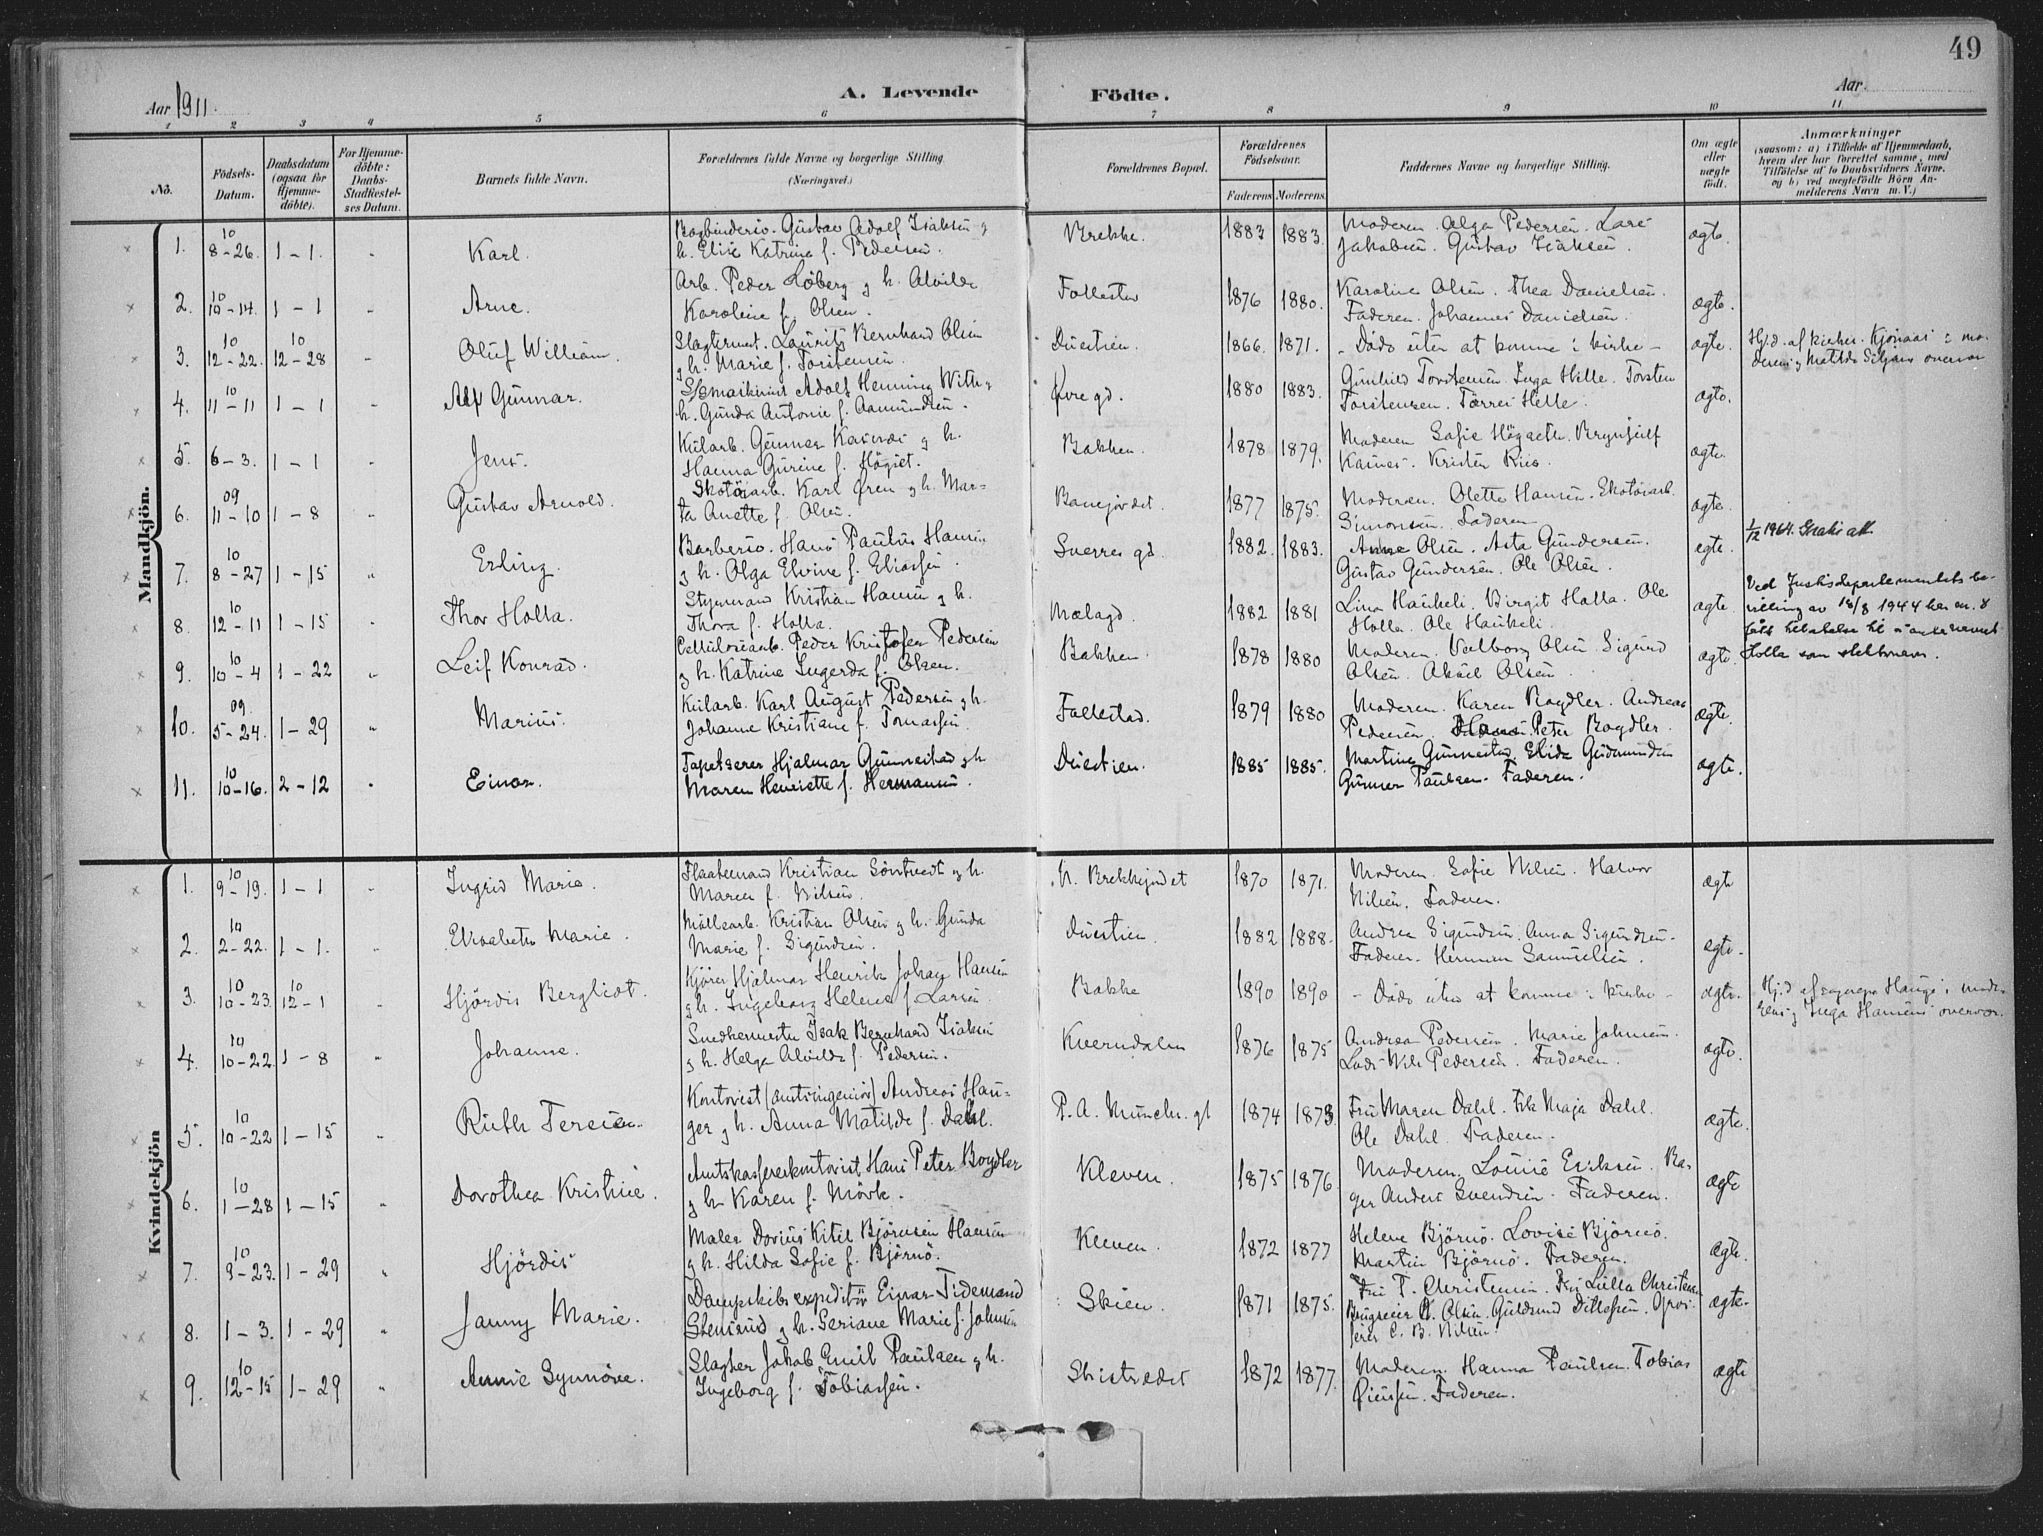 49
Aar 1911.
A. Levende Födte.
Aar
1 2 3 4 5 6 7 8 9 10 11
No.
Födsels-
Datum.
Daabsdatum
(ogsaa for
Hjemme-
döbte).
For Hjemme-
döbte:
Daabs-
Stadfæstel-
ses Datum.
Barnets fulde Navn.
Forældrenes fulde Navne og borgerlige Stilling
(Næringsvei.)
Forældrenes Bopæl.
Forældrenes
Födselsaar.
Faderens Moderens
Faddernes Navne og borgerlige Stilling.
Om ægte
eller
uægte
födt.
Anmærkninger
(saasom: a) i Tilfælde af Hjemmedaab,
hvem der har forrettet samme, med
Tilföielse af to Daabsvidners Navne,
og b) ved uægtefödte Börn An-
melderens Navn m. V.)
Mandkjön.
1. 10 8-26. 1-1. " Karl.
Bogbindersv. Gustav Adolf Isaksen g
h. Elise Katrine f. Pedersen.
Brekke. 1883 1883.
Moderen. Olga Pedersen. Lars
Jakobsen. Gustav Isaksen.
ægte.
2. 10 10-14. 1-1 " Arne.
Arb. Peder Löberg g h. Alvilde
Karoline f. Olsen.
Follestad 1876 1880.
Karoline Olsen. Thea Danielsen.
Faderen. Johannes Danielsen.
ægte.
3. 10 12-22. 10 12-28 " Oluf William.
Slagtermest. Laurits Bernhard Olsen
g h. Marie f. Torstensen.
Duestien. 1866. 1871.
- Döde uten at komme i kirke -
ægte.
Hj.d. af kirkes. Kjönaas i mo-
derens g Matilde Siljans overvær
4. 10 11-11 1-1 " Alf Gunnar.
Adolf Henning With g
h. Gunda Antonie f. Aamundsen.
Övre gd. 1880 1883.
Gunhild Torstensen. Inga Helle. Torsten
Torstensen. Torres Helle.
ægte.
5. 6-3. 1-1 " Jens.
Kularb. Gunnar Kasnes g h.
Hanna Gurine f. Högset.
Bakken. 1878 1879.
Moderen Sofie Högseth. Brynjulf
Kasnes. Kristen Riis.
ægte.
6. 09 11-10 1-8 " Gustav Arnold.
Skotöiarb. Karl Ören g h. Mar-
ta Anette f. Olsen.
Banejordet 1877 1875.
Moderen. Olette Hansen. Skotöiarb.
Simonsen. Faderen
ægte.
7. 10 8-27 1-15 " Erling.
Barbersv. Hans Paulus Hansen
g h. Olga Elvine f. Eliassen.
Sverres gd. 1882. 1883.
Anne Olsen. Asta Gundersen.
Gustav Gundersen. Ole Olsen.
egte.
1/12 1964. Gratis att.
8. 10 12-11 1-15 " Thor Holla.
Styrmand Kristian Hansen g h.
Thora f. Holla.
Mælagd. 1882 1881
Lina Haukeli. Birgit Holla. Ole
Holla. Ole Haukeli.
ægte.
Ved Justisdepartementets be-
villing av 18/8 1944 har nr. 8
fått tillatelse til å anta navnet
Holla som slektsnavn.
9. 10 10-4 1-22 " Leif Konrad.
Cellulosearb. Peder Kristofer Pedersen
g h. Katrine Ingerda f. Olsen.
Bakken. 1878 1880
Moderen. Valborg Olsen Sigurd
Olsen. Aksel Olsen.
ægte.
10. 09. 5-24. 1-29 " Marius.
Kularb. Karl August Pedersen g h.
Johanne Kristiane f. Tomassen.
Follestad. 1879 1880
Moderen. Karen Bogdler. Andreas
Pedersen. Peter Bogdler.
ægte.
11. 10 10-16. 2-12 " Einar.
Tapetserer Hjalmar Gunnestad g h
Maren Henriette f. Hermansen.
Duestien. 1885 1885.
Martine Gunnestad. Elida Gudmundsen
Gunnar Paulsen. Faderen.
ægte.
Kvindekjön
1. 10 9-19. 1-1 " Ingrid Marie.
Flaatemand Kristian Söntvedt g h.
Maren f. Nilsen.
N. Brekkejordet 1870 1871.
Moderen. Sofie Nilsen. Halvor
Nilsen. Faderen.
ægte
2. 10 2-22. 1-1. " Elisabeth Marie.
Möllearb. Kristian Olsen g h. Gunda
Marie f. Sigurdsen.
Duestien. 1882 1888.
Andrea Sigurdsen. Anna Sigurdsen.
Faderen. Herman Samuelsen.
ægte.
3. 10 10-23. 10 12-1 " Hjördis Bergliot.
Kjörer Hjalmar Henrik Johan Hansen
g h. Ingeborg Helene f. Larsen.
Bakke 1890 1890
- Döde uten at komme i kirke -
ægte.
Hj.d af sogneprest Hauge i mode-
rens g Inga Hansens overvær.
4. 10 10-22. 1-8 " Johanne.
Snedkermester Isak Bernhard Isaksen
g h. Helga Alvilde f. Pedersen.
Kverndalen 1876 1875
Andrea Pedersen. Marie Johnsen.
Nils Pedersen. Faderen.
ægte.
5. 10 10-22 1-15 " Ruth
Kontorist (amtsingeniör) Andreas Hau-
ger g h. Anna Matilde f. Dahl.
P. A. Munchs. gt 1874 1873
Fru Maren Dahl. Frk Maja Dahl.
Ole Dahl. Faderen.
ægte.
6. 10 1-28 1-15 " Dorothea Kristine.
Amtskassererkontorist Hans Peter Bogdler
g h Karen f. Mörk.
Kleven. 1875 1876
Moderen. Louise Eriksen. Ba-
ger Anders Svendsen. Faderen.
ægte
7. 10 9-23. 1-29 " Hjördis
Maler Dorius Kitil Björnsen Hansen
g h. Hilda Sofie f. Björnö.
Kleven. 1872 1877
Helene Björnö. Lovise Björnö.
Martin Björnö. Faderen.
ægte.
8. 1-3. 1-29 " Janny Marie.
Dampskibsexpeditör Einar Tidemand
Stensrud g h. Seriane Marie f. Johnsen
Skien. 1871 1875.
Fru T. Christensen. Fru Lulla Christensen
Olsen. Guldsmed Ditlefsen. Gros-
serer C. B. Nilsen.
ægte.
9. 10 12-15 1-29 " Annie Synnöve.
Slagter Jakob Emil Paulsen g h.
Ingeborg f. Tobiassen.
Skistrædet 1872 1877.
Moderen. Hanna Paulsen. Tobias
Öiensen. Faderen.
ægte